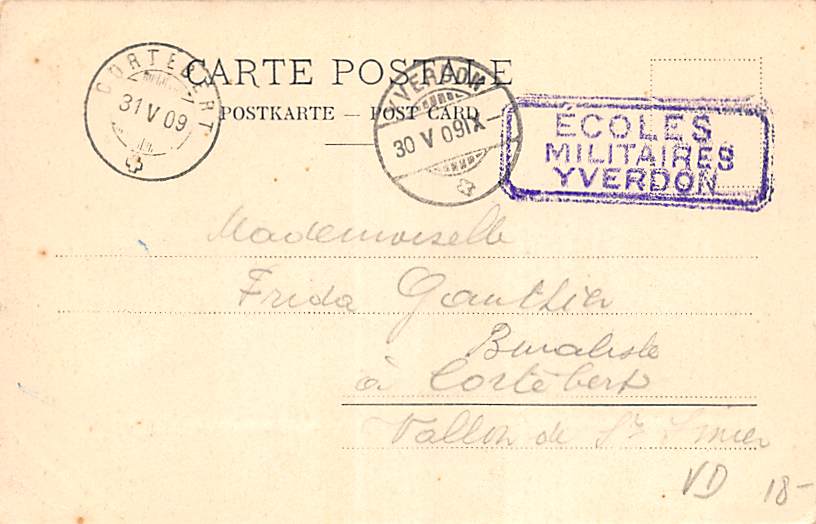 CARTE POSTALE
POSTKARTE — POST CARD
CORTEBERT
31 V 09
YVERDON
30 V 09 IX
ÉCOLES
MILITAIRES
YVERDON
Mademoiselle
Frida Gauthier
Buraliste
à Cortébert
Vallon de St Imier
VD 18-